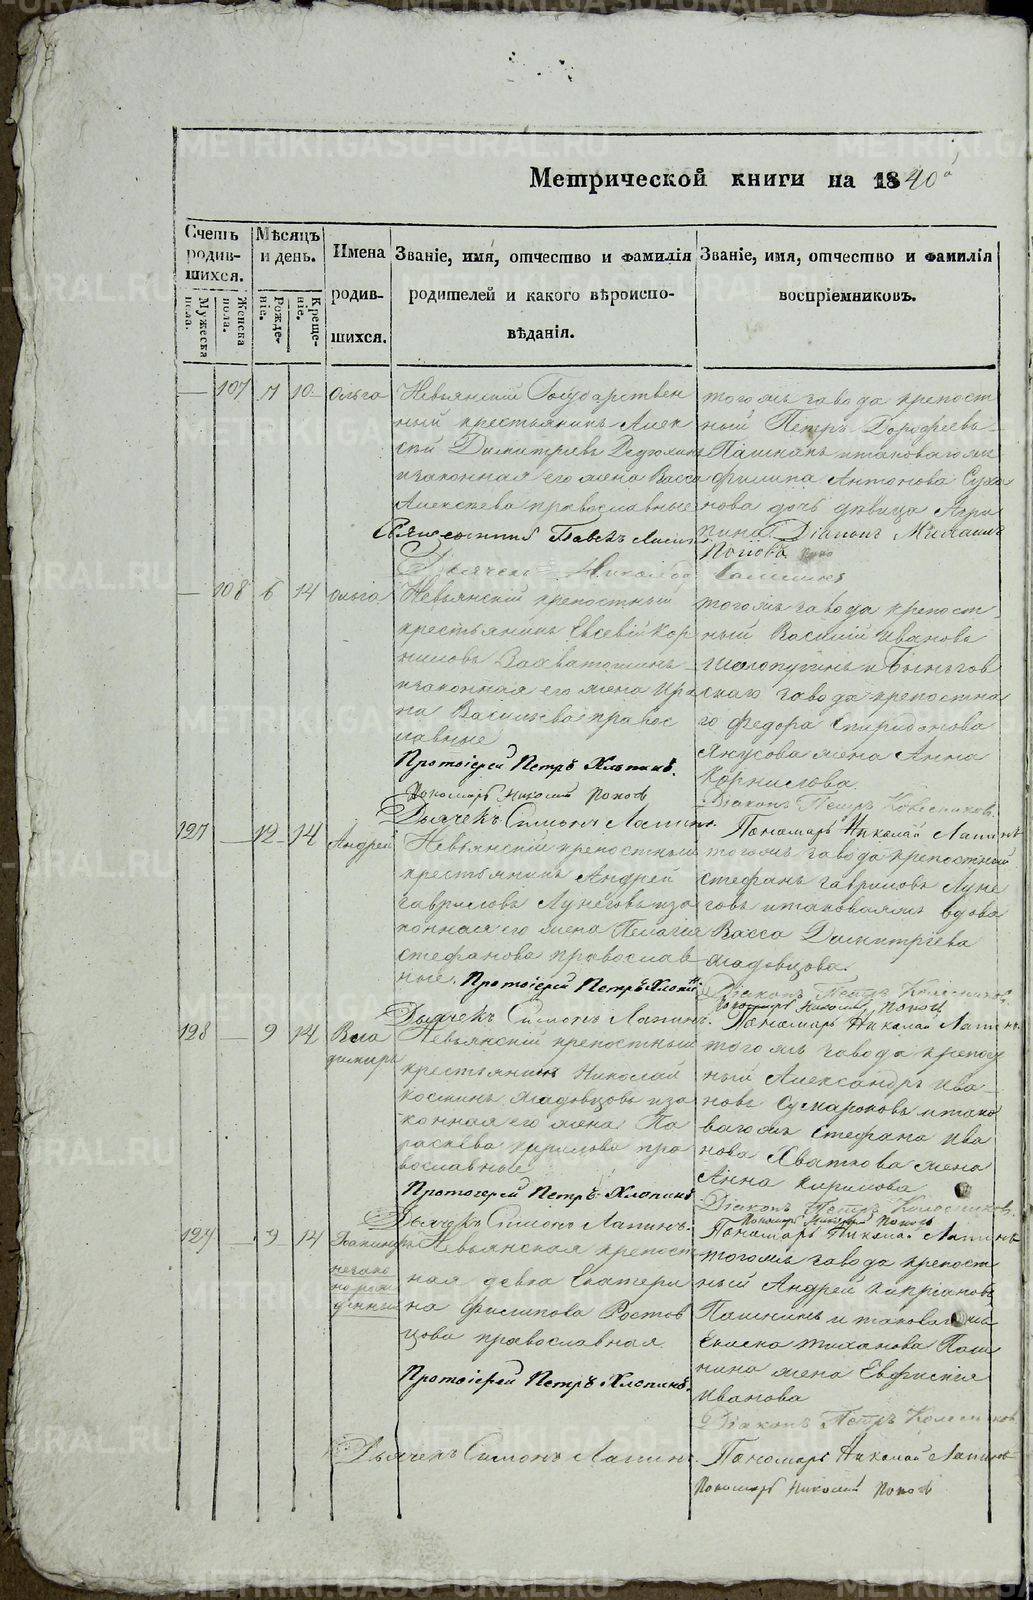 Метрической книги на 1840 а
Счетъ родив-шихся.
Мужеска пола.
Женска пола.
Мѣсяцъ и день.
Рожде-ніе.
Креще-ніе.
Имена родив-шихся.
Званіе, имя, отчество и фамилія родителей и какого вѣроиспо-вѣданія.
Званіе, имя, отчество и фамилія воспріемниковъ.
— 107 7 10 Ольга
Невьянскій Государствен
ный крестьянинъ Алек
сѣй Димитріевъ
и законная его жена Васса
Алексѣева православные
Священникъ Павелъ
Дьячекъ Николай
тогожъ завода крепост
ный Петръ Дорофеевъ
Пашнинъ итаковагожъ
Филипа Антонова Суха
нова дочь дѣвица Агри
пина Діаконъ Михаилъ
Поповъ
— 108 6 14 Ольга
Невьянскій крепостный
крестьянинъ Евсевій Кор
ниловъ
и законная его жена Ири
на Васильева правос
лавные
Протоіерей Петръ Хлопинъ.
Пономарь Николай Поповъ
Дьячекъ Симонъ Лапинъ
тогожъ завода крепост
ный Василій Ивановъ
Шелопугинъ и Быньгов
скаго завода крепостна
го Федора Спиридонова
Янусова жена Анна
Корнилова
Діаконъ Петръ Колесниковъ.
Пономарь Николай Лапинъ
127 — 12 14 Андрей
Невьянскій крепостный
крестьянинъ Андрей
Гавриловъ Лунеговъ иза
конная его жена Пелагия
Стефанова православ
ные. Протоіерей Петръ Хлопинъ
Дьячекъ Симонъ Лапинъ.
тогожъ завода крепостный
Стефанъ Гавриловъ Луне
говъ итаковаяжъ вдова
Васса Димитріева
Жадовцова.
Діаконъ Петръ Колесниковъ.
Пономарь Николай Поповъ
Пономарь Николай Лапинъ
128 — 9 14 Вла
димиръ
Невьянскій крепостный
крестьянинъ Николай
Костинъ Жадовцовъ иза
конная его жена Па
раскева Кирилова пра
вославные
Протоіерей Петръ Хлопинъ
Дьячекъ Симонъ Лапинъ.
тогожъ завода крепост
ный Александръ Ива
новъ Сумароковъ итако
вагожъ Стефана Ива
нова Хваткова жена
Анна Кирилова
Діаконъ Петръ Колесниковъ.
Пономарь Николай Поповъ
Пономарь Николай Лапинъ
129 — 9 14
незако
норож
денный
Невьянская крепост
ная девка Екатери
на Филипова Ростов
цова православная
Протоіерей Петръ Хлопинъ.
Дьячекъ Симонъ Лапинъ.
тогожъ завода крепост
ный Андрей Кипріановъ
Пашнинъ и таковагожъ
Тиханова Паш
нина жена Евфросинія
Иванова
Діаконъ Петръ Колесниковъ
Пономарь Николай Лапинъ
Пономарь Николай Поповъ
METRIKI.GASU-URAL.RU